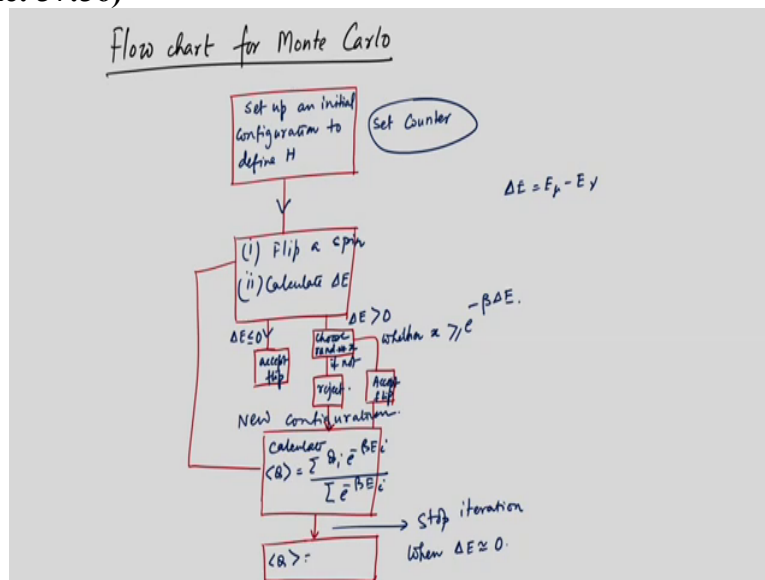 Flow chart for Monte Carlo
Set up an initial
configuration to
define H
Set Counter
ΔE = Eμ - Eν
(i) Flip a spin
(ii) Calculate ΔE
ΔE ≤ 0
ΔE > 0
choose
whether x ⩾ e^{-βΔE}.
accept
flip
if not
reject.
Accept
flip
New configuration.
Calculate
<Q> = Σ Q_i e^{-βE_i}
Σ e^{-βE_i}
Stop iteration
When ΔE ≃ 0.
<Q> =